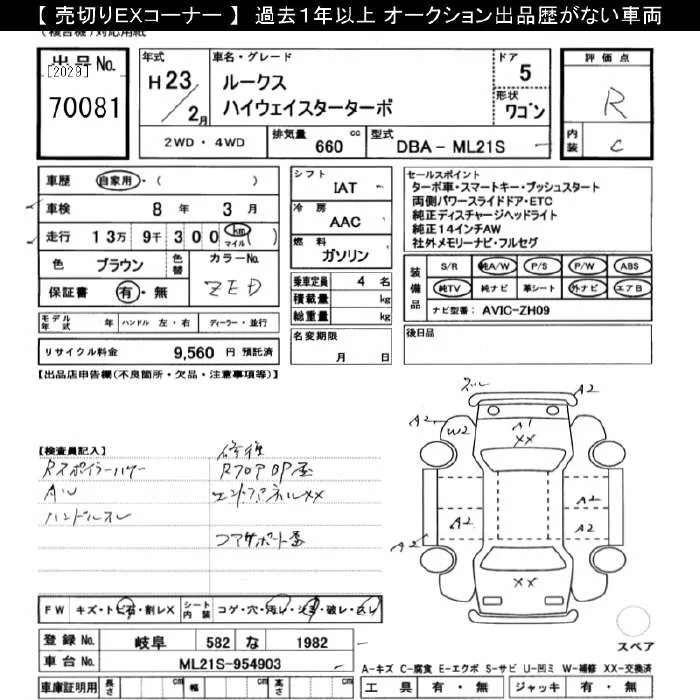 【 売切りEXコーナー 】 過去1年以上 オークション出品歴がない車両
出品No.
[2029]
70081
年式
H23/2月
車名・グレード
ルークス
ハイウェイスターターボ
ドア
5
形状
ワゴン
評価点
R
内装
C
2WD・4WD
排気量
660 cc
型式
DBA- ML21S
車歴 自家用・( )
車検 8年 3月
走行 13万 9千 300 km マイル ( )
色 ブラウン 色替 カラーNo.
ZED
保証書 有・無
モデル年式 年 ハンドル 左・右 ディーラー・並行
リサイクル料金 9,560 円 預託済
シフト
IAT
冷房
AAC
燃料
ガソリン
乗車定員 4 名
積載量 kg
総重量 kg
名変期限
月 日
セールスポイント
ターボ車・スマートキー・プッシュスタート
両側パワースライドドア・ETC
純正ディスチャージヘッドライト
純正14インチAW
社外メモリーナビ・フルセグ
装備品
S/R 純A/W P/S P/W ABS
純TV 純ナビ 革シート 外ナビ エアB
ナビ型番: AVIC-ZH09
後日品
【出品店申告欄(不良箇所・欠品・注意事項等)】
【検査員記入】
ハンドルスレ
コアサポート歪
A2
A2
W2
A1
XX
A2
A2
A2
A2
XX
スペア
FW キズ・トビ石・割レX シート内装 コゲ・穴・汚レ・シミ・破レ・スレ
登録No. 岐阜 582 な 1982
車台No. ML21S-954903
車庫証明用 長さ cm 幅 cm 高さ cm
A-キズ C-腐食 E-エクボ S-サビ U-凹ミ W-補修 XX-交換済
工具 有・無 ジャッキ 有・無